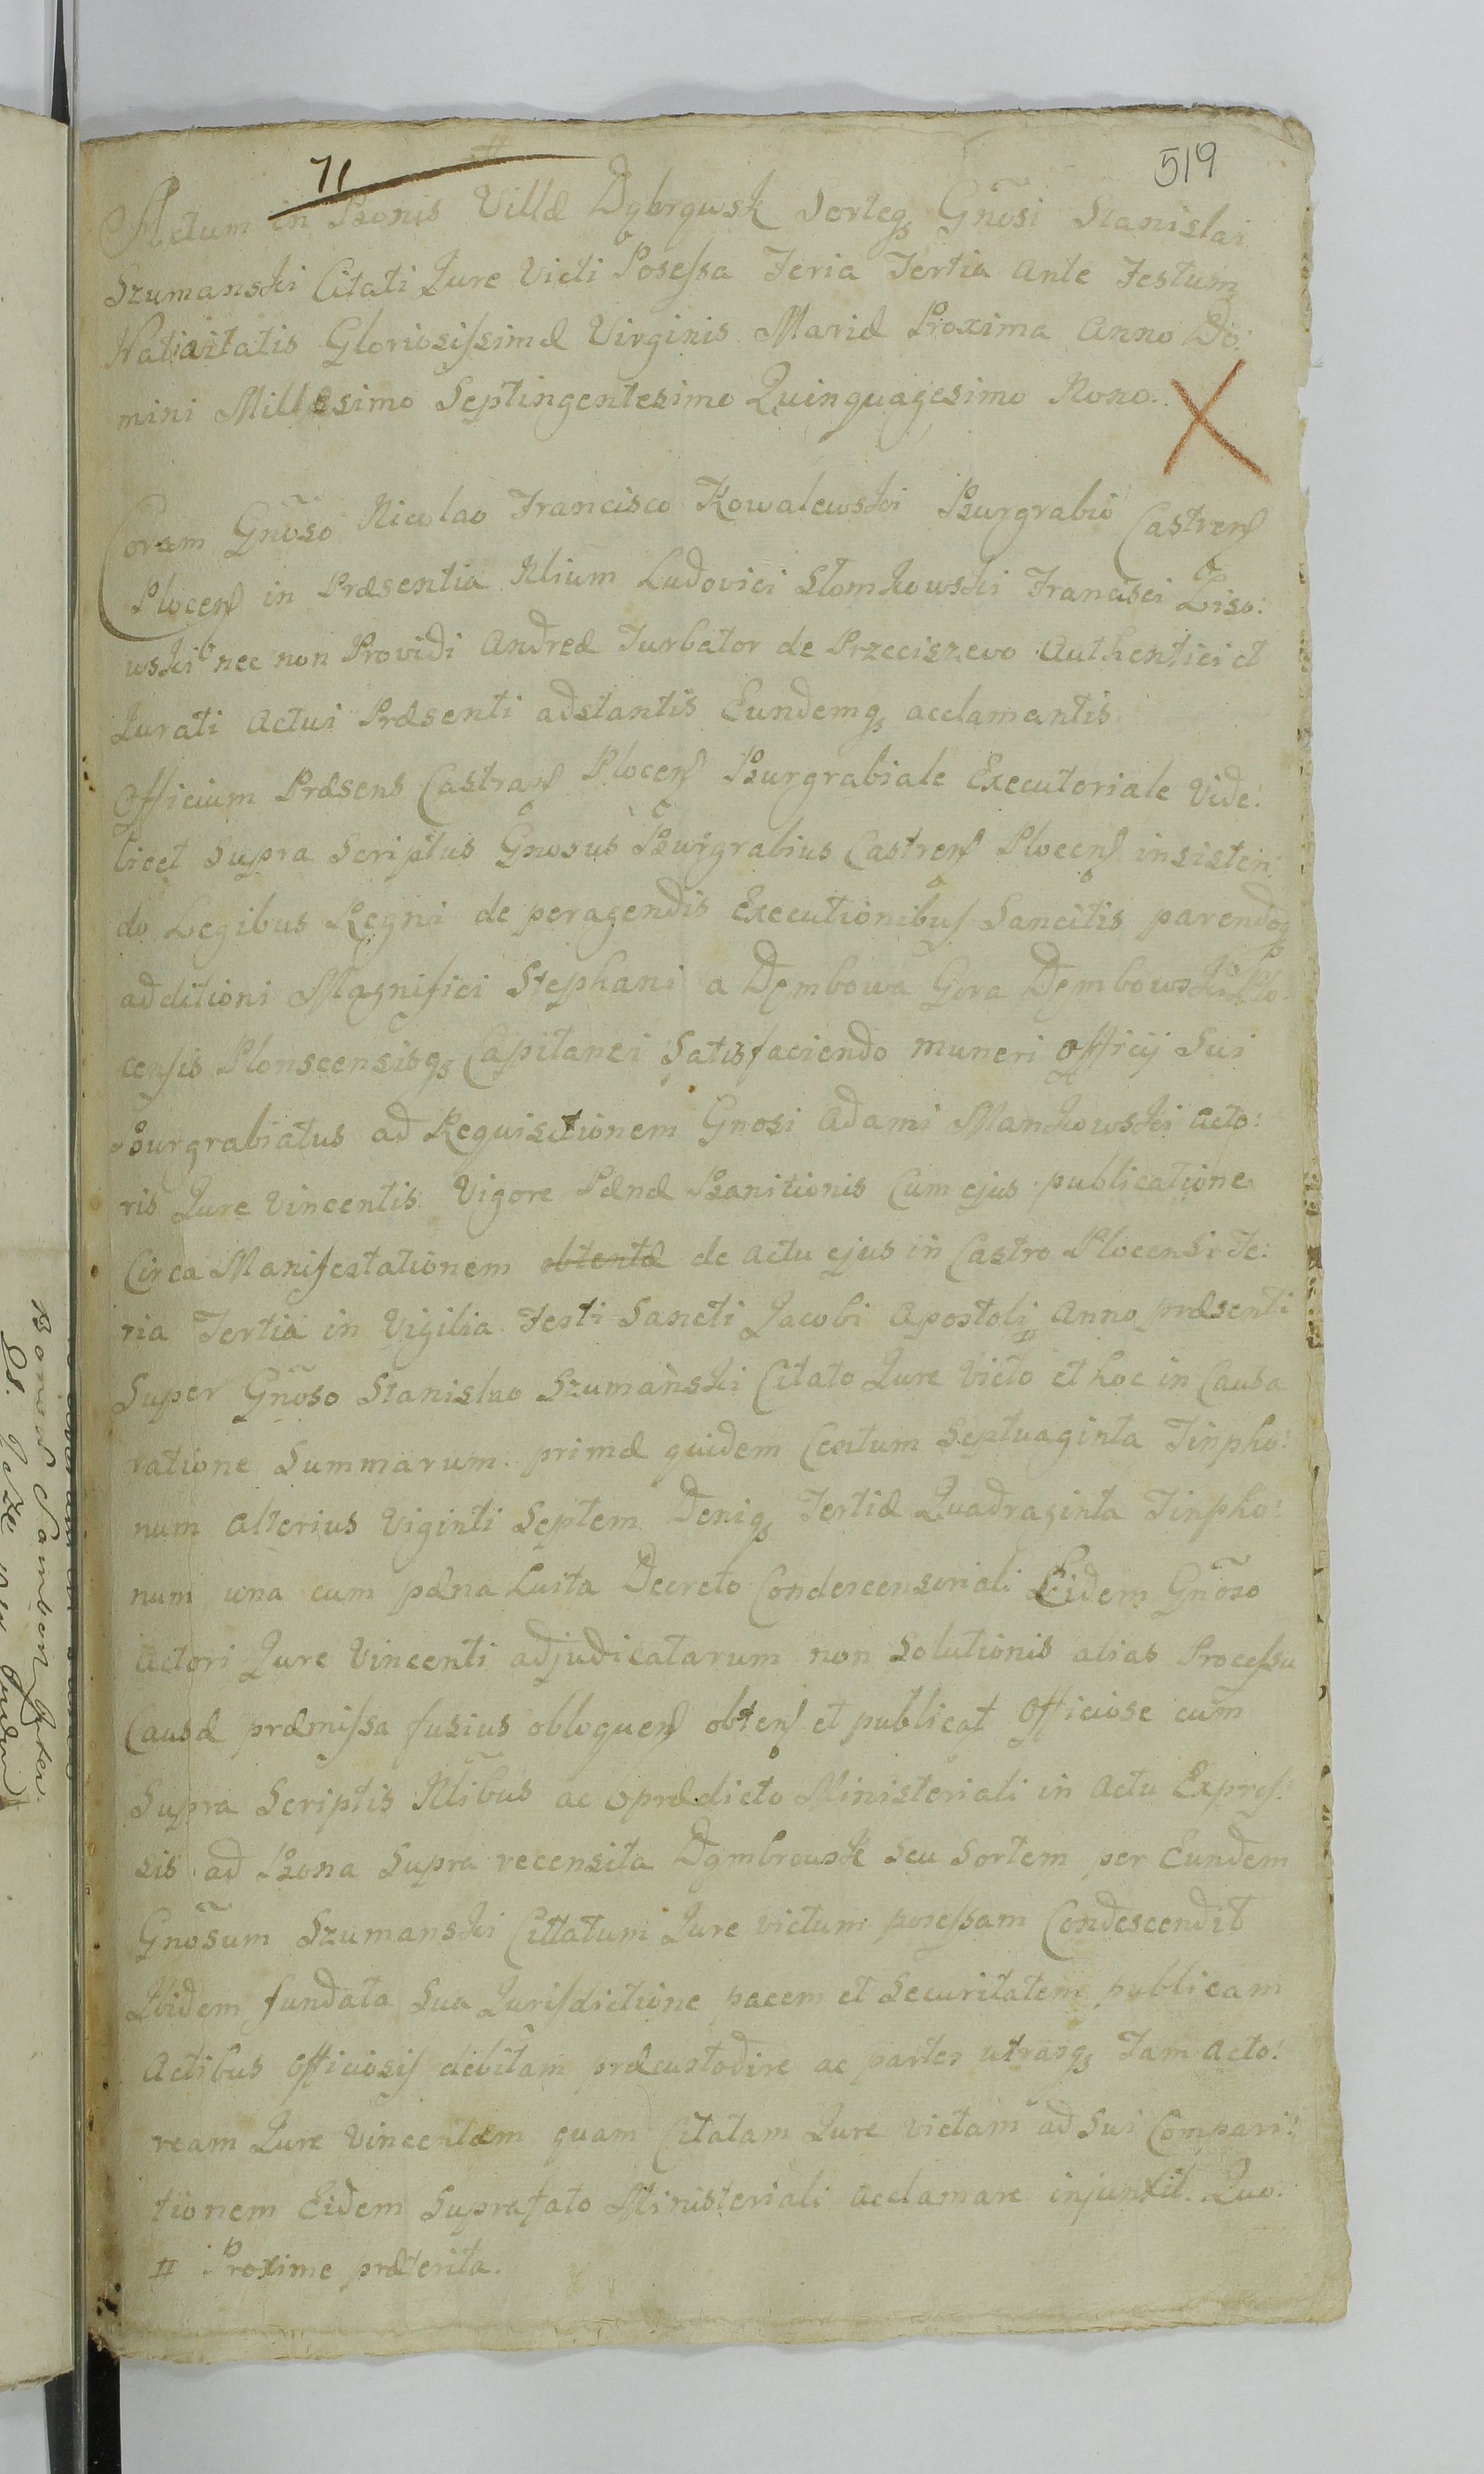 71
519
Actum in Bonis Villæ Dąbrąwsk Sorteq₃ Gnõsi Stanislai
Szumanski Citati Jure Victi Posessa Feria Tertia Ante Festum
Nativitatis Gloriosissimæ Virginis Mariæ Proxima Anno Do:
mini Millesimo Septingentesimo Quinquagesimo Nono.
Coram Gnõso Nicolao Francisco Kowalewski Burgrabio Castren
Plocen in Præsentia Nlium Ludovici Slomkowski Francisci Liso:
wski nec non Providi Andreæ Turbator de Przeciszewo Authentici et
Jurati Actui Præsenti adstantis Eundemq₃ acclamantis
Officium Præsens Castren Plocen Burgrabiale Executoriale Vide:
licet Supra Scriptus Gnosus Burgrabius Castren Plocen insisten:
do Legibus Regni de peragendis Executionibus Sancitis parendoq₃
additioni Magnifici Stephani a Dembowa Gora Dembowski Plo:
censis Plonscensisq₃ Capitanei Satisfaciendo muneri Officij Sui
Burgrabiatus ad Requisitionem Gnosi Adami Mankowski Acto:
ris Jure Vincentis Vigore Pænæ Banitionis Cum ejus publicatione
Circa Manifestationem obtentæ de actu ejus in Castro Plocensi Fe:
ria Tertia in Vigilia Festi Sancti Jacobi Apostoli II Anno præsenti
Super Gnõso Stanislao Szumański Citato Jure Victo et hoc in Causa
ratione Summarum primæ quidem Centum Septuaginta Tinpho:
num alterius Viginti Septem Deniq₃ Tertiæ Quadraginta Tinpho:
num una cum pæna Luita Decreto Condescensoriali Eidem Gnõso
Actori Jure Vincenti adjudicatarum non Solutionis alias Processu
Causæ præmissa fusius obloquen obten et publicat Officiose cum
Supra Scriptis Nlibus ac prædicto Ministeriali in Actu Expres:
sis ad Bona Supra recensita Dąmbrowsk seu Sortem per Eundem
Gnõsum Szumanski Cittatum Jure victum posessam Condescendit
Ibidem fundata Sua Jurisdictione pacem et Securitatem publicam
Actibus Officiosis debitam præcustodire ac partes utrasq₃ Tam Acto:
ream Jure Vincentem quam Citatam Jure victam ad Sui Compari:
tionem Eidem Suprafato Ministeriali acclamare injunxit. Quo.
II Proxime præterita.